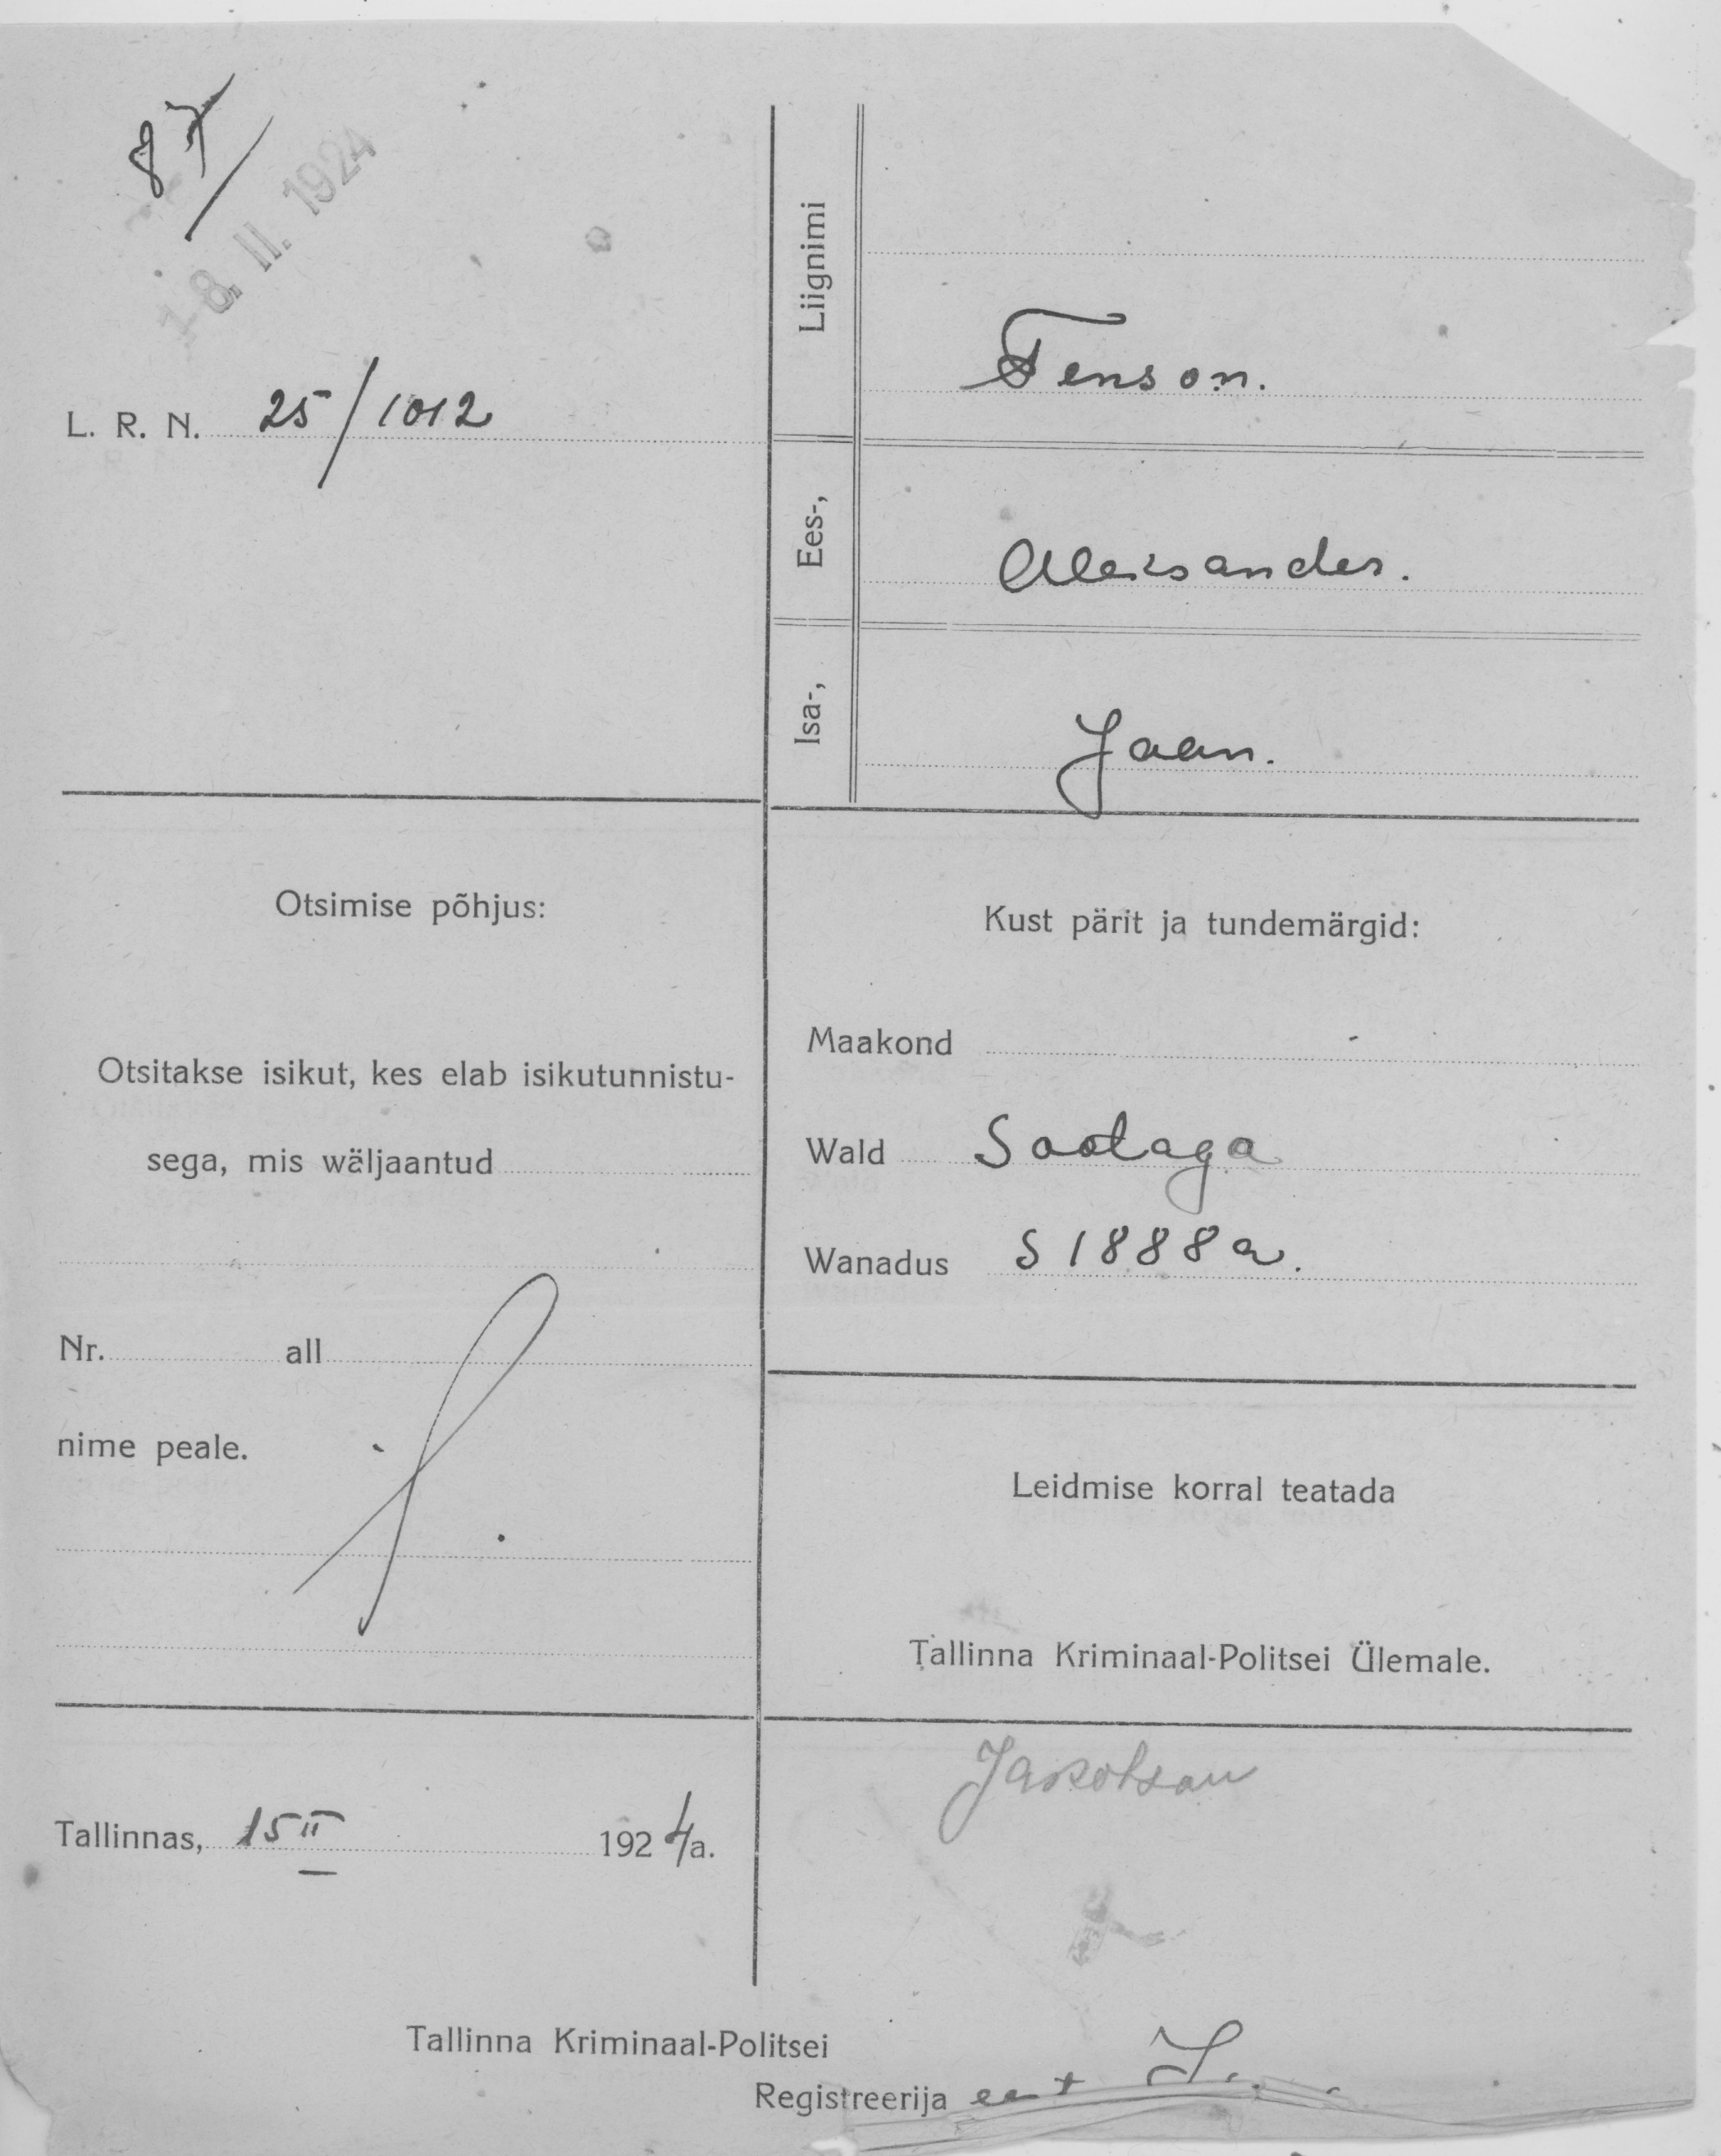 87/
18. II. 1924
L. R. N. 25/1012
Liignimi
Tenson.
Ees-,
Aleksander.
Isa-,
Jaan.
Otsimise põhjus:
Otsitakse isikut, kes elab isikutunnistu-
sega, mis wäljaantud
Nr. all
nime peale.
Kust pärit ja tundemärgid:
Maakond -
Wald Sootaga
Wanadus S 1888 a.
Leidmise korral teatada
Tallinna Kriminaal-Politsei Ülemale.
Tallinnas, 15 II 1924 a.
Jakobson
Tallinna Kriminaal-Politsei
Registreerija eest